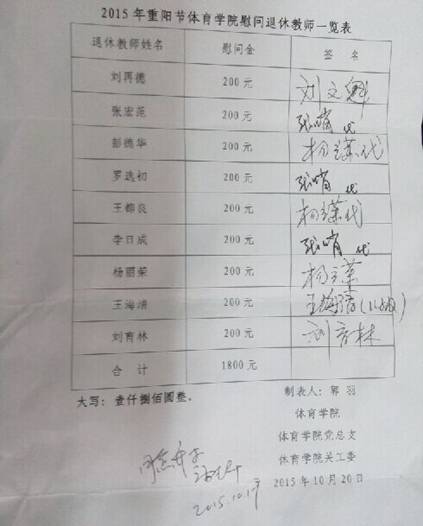 2015年重阳节体育学院慰问退休教师一览表
退休教师姓名 慰问金 签 名
刘再德 200元
张宏范 200元 代
彭德华 200元 代
罗选初 200元 代
王锦良 200元 代
李日成 200元 代
杨丽荣 200元
王海清 200元 王海清
刘育林 200元 刘育林
合 计 1800元
大写：壹仟捌佰圆整。 制表人：郭 羽
体育学院
体育学院党总支
体育学院关工委
2015年10月20日
2015.10.19